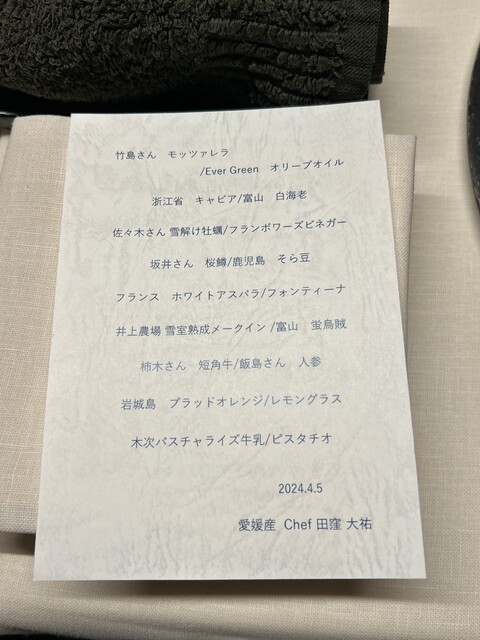 竹島さん　モッツァレラ
/Ever Green　オリーブオイル
浙江省　キャビア/富山　白海老
佐々木さん 雪解け牡蠣/フランボワーズビネガー
坂井さん　桜鱒/鹿児島　そら豆
フランス　ホワイトアスパラ/フォンティーナ
井上農場 雪室熟成メークイン /富山　蛍烏賊
柿木さん　短角牛/飯島さん　人参
岩城島　ブラッドオレンジ/レモングラス
木次パスチャライズ牛乳/ピスタチオ
2024.4.5
愛媛産  Chef 田窪 大祐